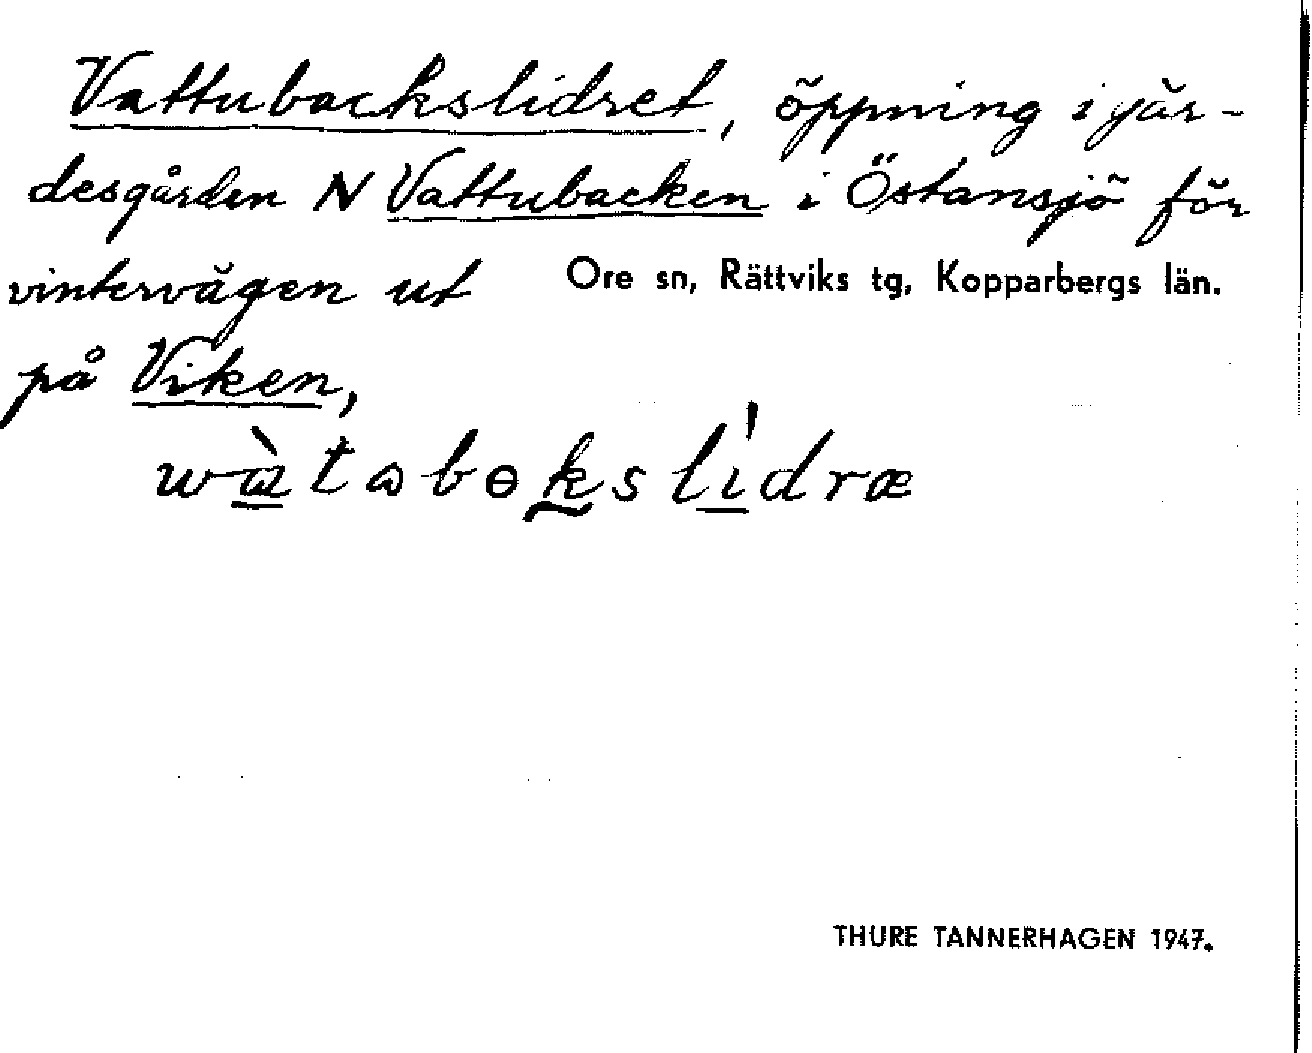 Vattubackslidret, öppning i gär-
desgården N Vattubacken i Östansjö för
vintervägen ut Ore sn, Rättviks tg, Kopparbergs län.
på Viken,
wàtabɵkslídræ
THURE TANNERHAGEN 1947.